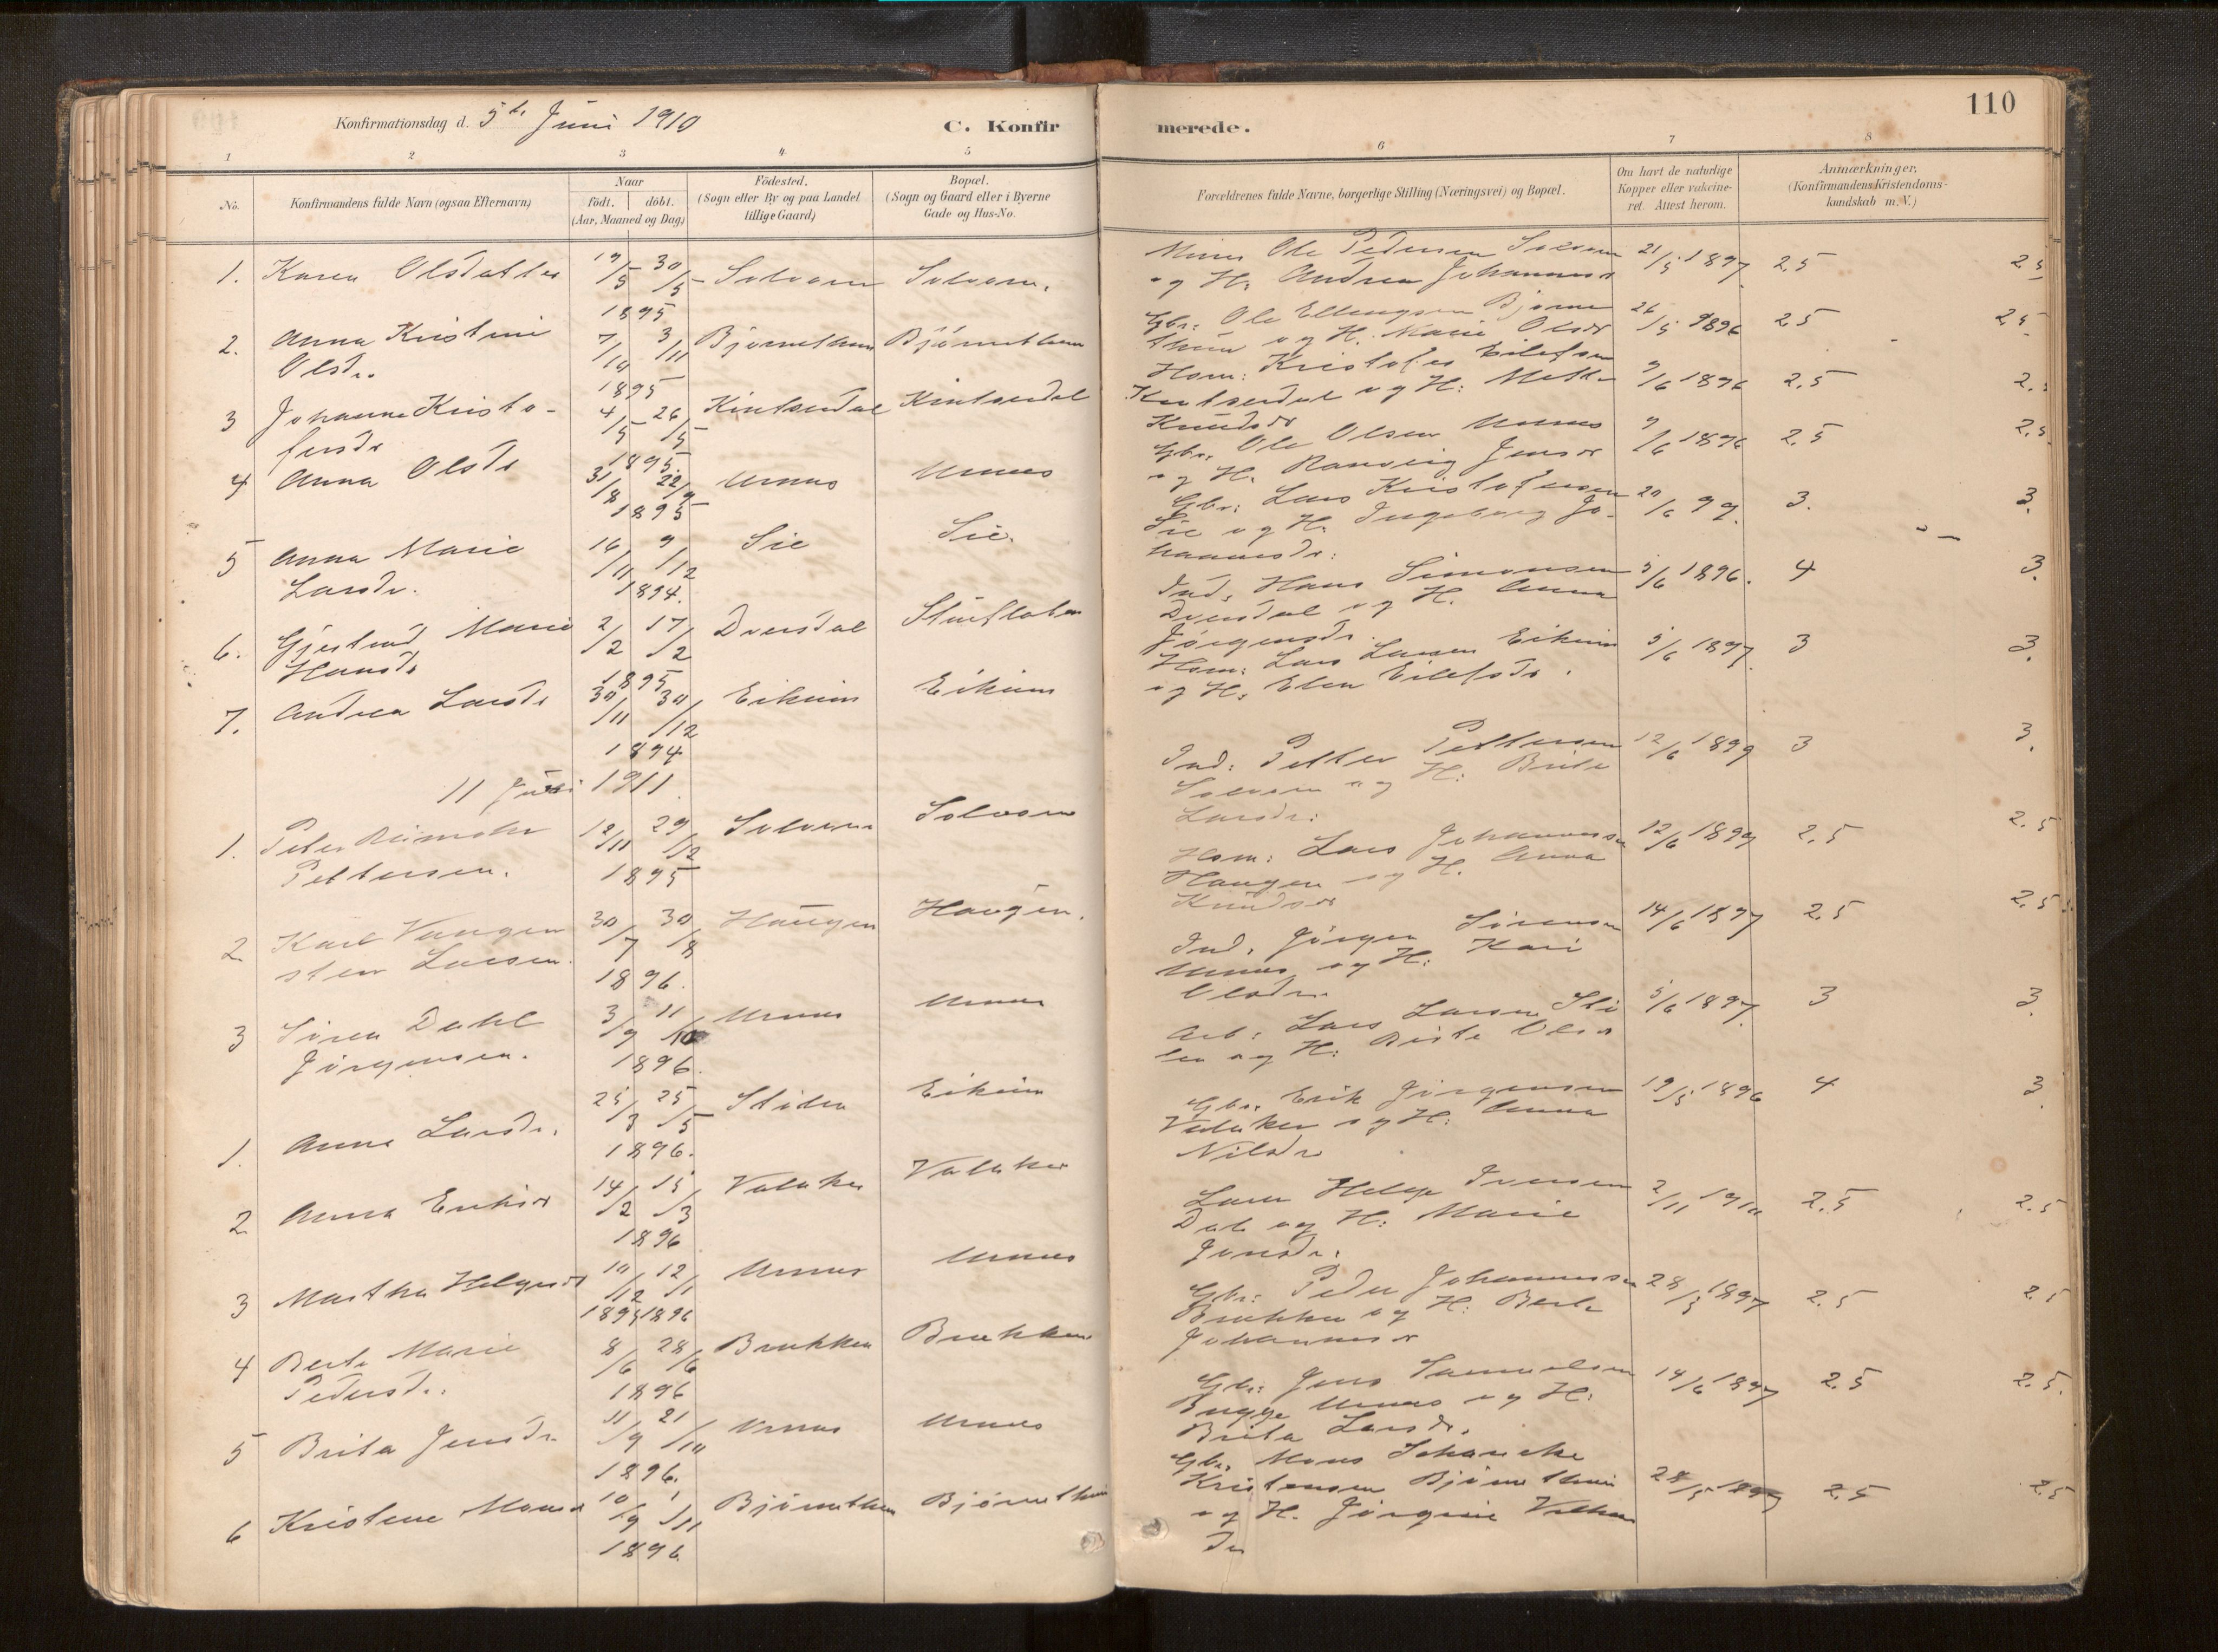 110
Konfirmationsdag d. 5te Juni 1910
C. Konfirmerede.
1 2 3 4 5 6 7 8
No.
Konfirmandens fulde Navn (ogsaa Efternavn)
Naar
født. døbt.
(Aar, Maaned og Dag)
Fødested.
(Sogn eller By og paa Landet
tillige Gaard)
Bopæl.
(Sogn og Gaard eller i Byerne
Gade og Hus-No.
Forældrenes fulde Navne, borgerlige Stilling (Næringsvei) og Bopæl.
Om havt de naturlige
Kopper eller vakcine-
ret. Attest herom.
Anmærkninger.
(Konfirmandens Kristendoms-
kundskab m. V.)
1. Karen Olsdatter 19/5 30/5 Solvorn Solvorn.
1895
Ole Pedersen Solvorn 21/5 1897. 2.5 2.5
og H. Andrea Johannesdr
2. Anna Kristine 7/10 3/11 Bjørnethun Bjørnethun
Olsdr. 1895
Gbr: Ole Ellingsen Bjørne 26/5 1896 2.5 2.5
thun og H. Marie Olsdr
3 Johanne Kristo- 4/5 26/5 Kintsendal Kintsendal
fersdr 1895.
Hsm: Kristofer Eilefsen 9/6 1896 2.5
og H: Mette
Knudsdr
4 Anna Olsdr 31/8 22/9 Urnes Urnes
1895
Gbr. Ole Olsen Urnes 9/6 1896 2.5 2.5
og H. Ranveig Jensdr
5 Anna Marie 16/11 9/12 Sie Sie.
Larsdr. 1894.
Gbr: Lars Kristofersen 20/6 99. 3. 3.
Sie og H. Ingeborg Jo-
hannesdr:
6. Gjertrud Marie 2/2 17/2 Dversdal
Hansdr 1895
Ind. Hans Simonsen 5/6 1896. 4 3.
Dversdal og H. Anna
Jørgensdr.
7. Andrea Larsdr 30/11 30/12 Eikum Eikum
1894
Hsm: Lars Larsen Eikum 5/6 1897. 3 3.
og H. Elen Eilefsdr.
11 Juni 1911
1. Peter 12/11 29/12 Solvorn Solvorn
Pettersen. 1895
Ind: Petter Pettersen 12/6 1899 3 3.
Solvorn og H: Brite
Larsdr:
2 Karl Vangen 30/7 30/8 Haugen Haugen.
sten Larsen. 1896.
Hsm: Lars Johannessen 12/6 1899 2.5 2.5
Haugen og H. Anna
Knudsdr
3 Søren Dahl 3/9 11/10 Urnes Urnes
Jørgensen. 1896.
Ind. Jørgen Sørensen 14/6 1897 2.5 2.5
Urnes og H: Kari
Olsdr
1. Anna Larsdr. 25/3 25/5 Stiden Eikum
1896.
Arb: Lars Larsen Sti 5/6 1897. 3 3.
den og H: Brite Olsdr
2 Anna Eriksdr 14/2 15/3 Valaker Valaker
1896
Gbr. Erik Jørgensen 19/5 1896 4 3.
Valaker og H: Anna
Nilsdr
3 Martha Helgesdr 10/12 12/1 Urnes Urnes
1895 1896
Helge Iversen 2/11 1910 2.5 2.5
Dal og H: Marie
Jensdr.
4 Berte Marie 8/6 28/6 Brækken Brækken
Pedersdr. 1896
Gbr: Peder Johannessen 28/5 1897 2.5 2.5
Brækken og H: Berte
Johannesdr
5 Brita Jensdr. 11/9 21/10 Urnes Urnes
1896.
Gbr: Jens Samuelsen 14/6 1897 2.5 2.5.
Bugge Urnes og H:
Brita Larsdr.
6 Kristine Monsdr 10/9 1/11 Bjørnethun Bjørnethun
1896
Gbr. Mons
Kristensen Bjørnethun 28/5 1897 2.5 2.5
og H. Jørgine